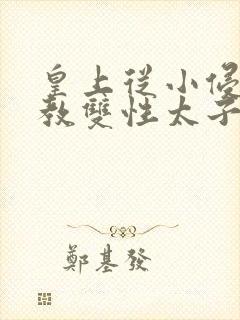 皇上從小侵
教雙性太子
鄭基發